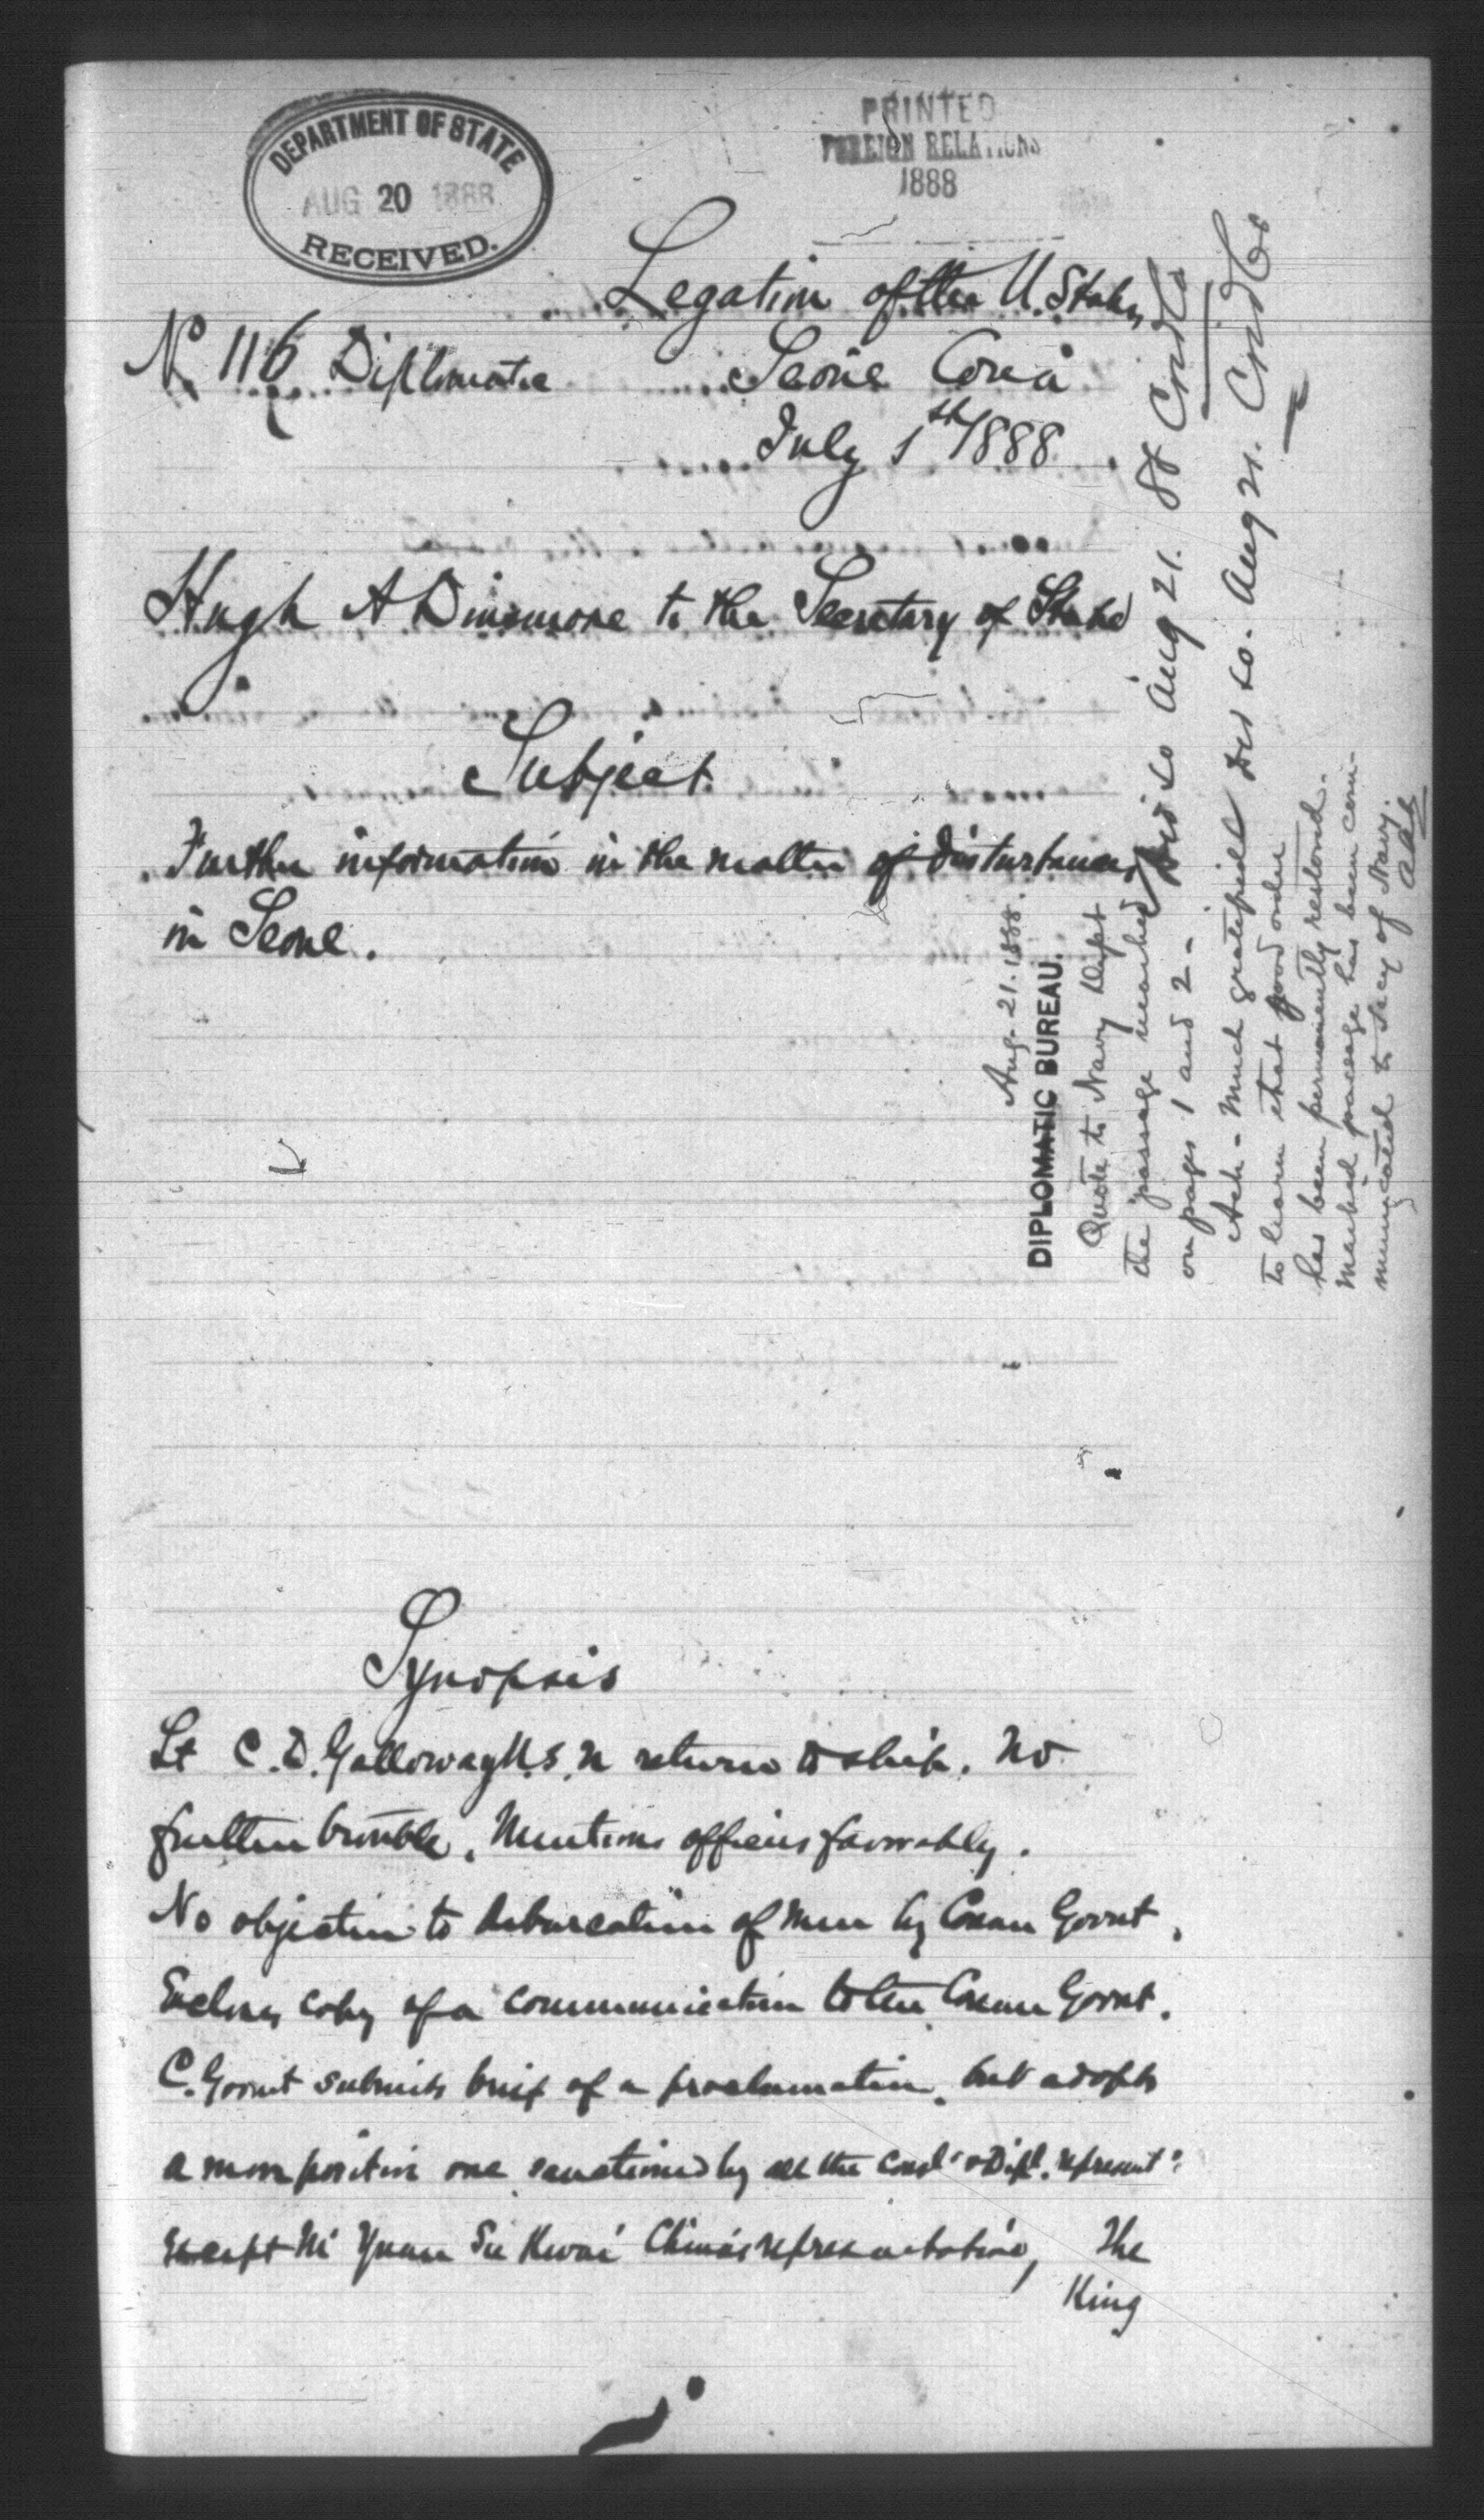 DEPARTMENT OF STATE
AUG 20 1888
RECEIVED.
PRINTED
FOREIGN RELATIONS
1888
Legation of the U. States
No 116 Diplomatic Seoul Corea
July 1st 1888
Hugh A Dinsmore to the Secretary of State
Subject
Further information in the matter of disturbances
in Seoul.
Synopsis
Lt C. D. Galloway U.S.N returns to ship. No
further trouble. Mentions officers favorably.
No objection to debarcation of men by Corean Govnt.
Encloses copy of a communication to the Corean Govnt.
C. Govnt submits brief of a proclamation, but adopts
a more positive one sanctioned by all the Consl & Dipl. represent
except Mr Yuan Sie Kwai China's representative, The
King
Aug. 21. 1888.
DIPLOMATIC BUREAU.
Quote to Navy Dept
the passage marked
on pages 1 and 2 -
Ack - Much gratified
to learn that good order
has been permanently restored.
Marked passage has been com-
municated to Secy of Navy.
AAA
so Aug 21. 88
so. Aug 21.